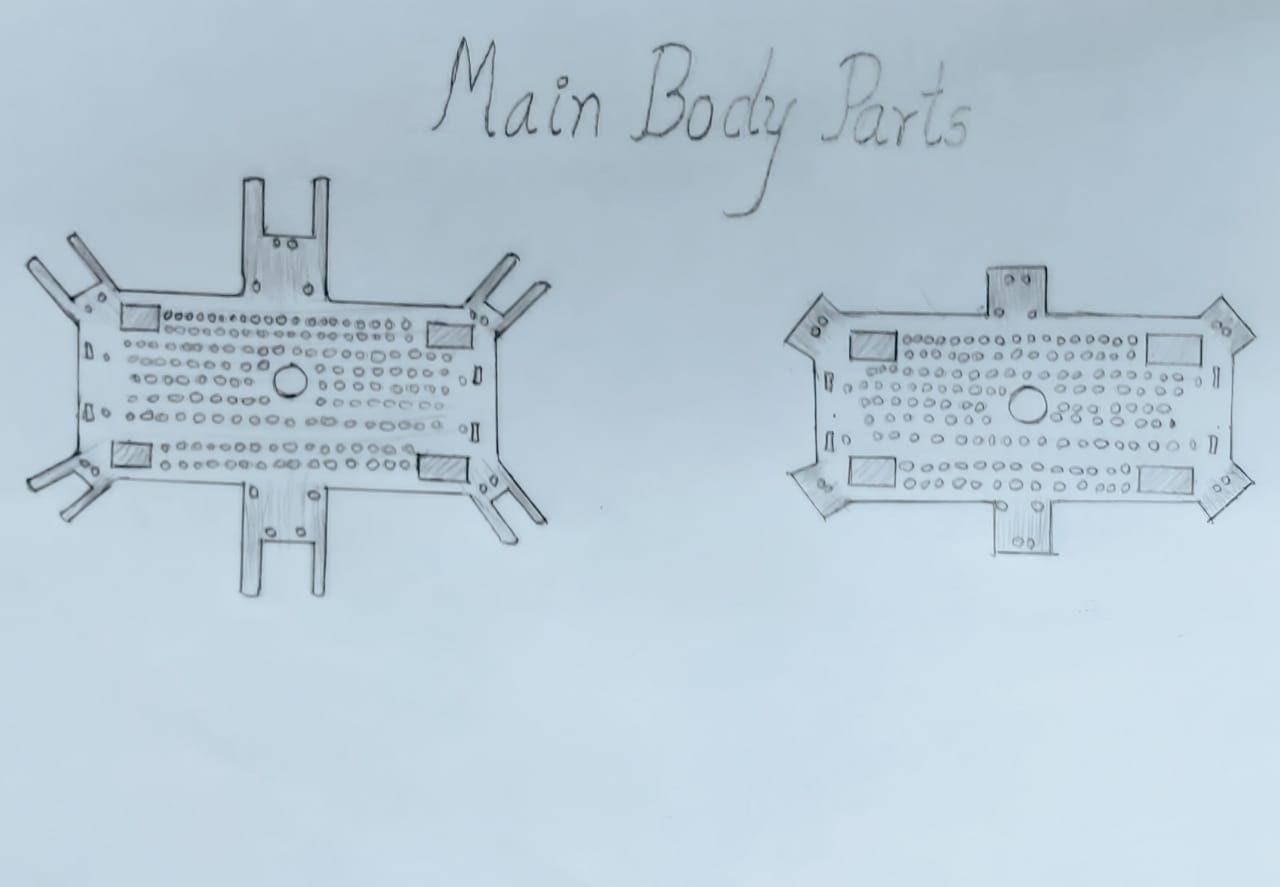 Main Body Parts